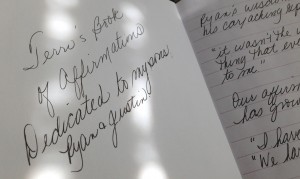 Terri's Book
of Affirmations
Dedicated to my sons
Ryan & Justin
Ryan's wisdom
his carjacking
"it wasn't the
thing that
to me"
Our
has
"I have
"We